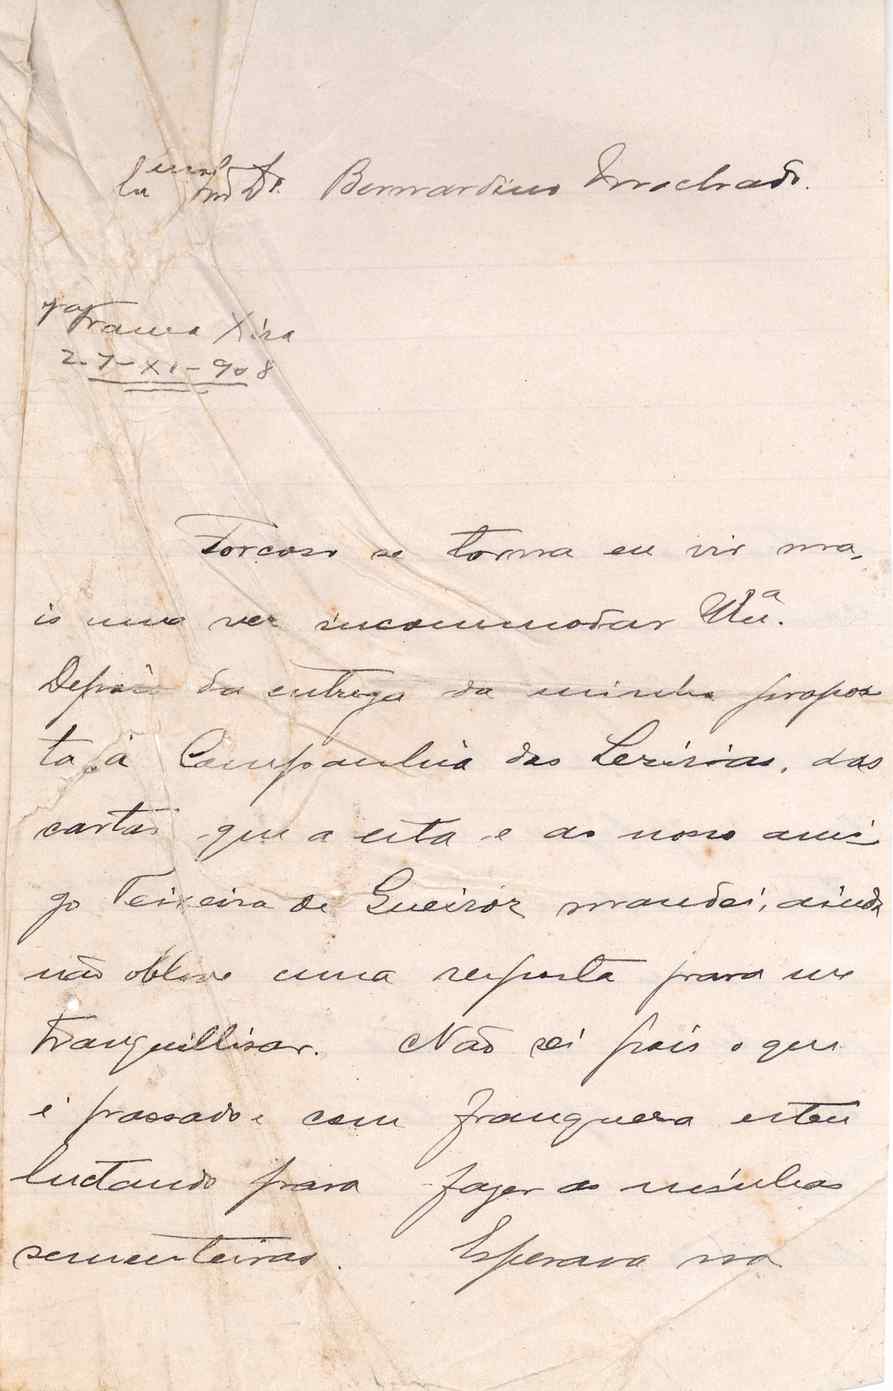 Exmo Snr Dr. Bernardino Machado.
Va Franca Xira
27-XI-908
Forçoso se torna eu vir ma-
is uma vez incommodar V. Exª.
Depois da entrega da minha propos
ta á Companhia das Lezirias, das
cartas que a esta e ao nosso ami-
go Teixeira de Queiroz mandei, ainda
não obtive uma resposta para me
tranquillisar. Não sei pois o que
é passado e com franqueza estou
luctando para fazer as minhas
sementeiras. Esperava na